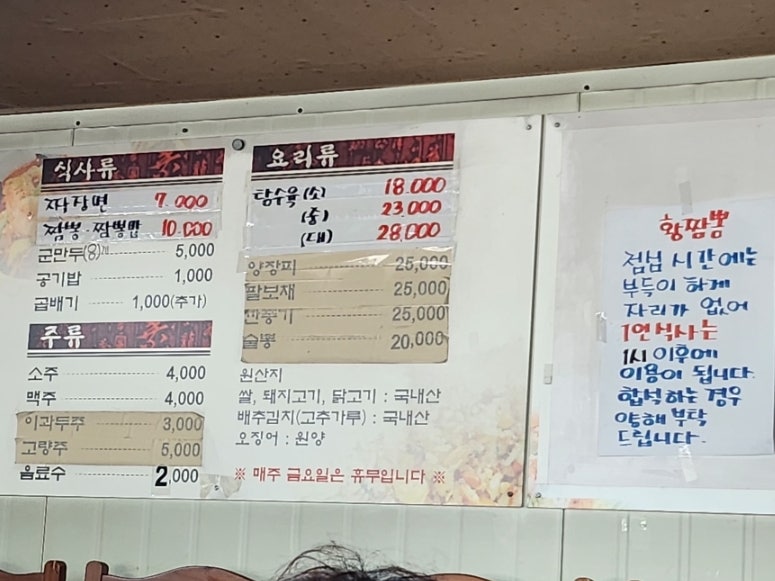 식사류
짜장면 7.000
짬뽕·짬뽕밥 10.000
군만두(8개) 5,000
공기밥 1,000
곱배기 1,000(추가)
주류
소주 4,000
맥주 4,000
이과두주 3,000
고량주 5,000
음료수 2,000
요리류
탕수육(소) 18.000
(중) 23.000
(대) 28.000
양장피 25,000
팔보채 25,000
깐풍기 25,000
술뽕 20,000
원산지
쌀, 돼지고기, 닭고기 : 국내산
배추김치(고추가루) : 국내산
오징어 : 원양
※ 매주 금요일은 휴무입니다 ※
황짬뽕
점심 시간에는
부득이 하게
자리가 없어
1인식사는
1시 이후에
이용이 됩니다.
합석하는 경우
양해 부탁
드립니다.